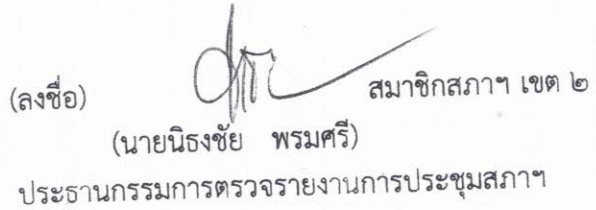 (ลงชื่อ) สมาชิกสภาฯ เขต ๒
(นายนิธงชัย พรมศรี)
ประธานกรรมการตรวจรายงานการประชุมสภาฯ